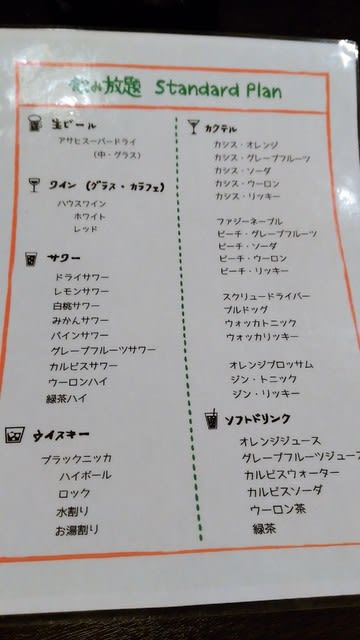 飲み放題 Standard Plan
生ビール
アサヒスーパードライ
(中・グラス)
ワイン (グラス・カラフェ)
ハウスワイン
ホワイト
レッド
サワー
ドライサワー
レモンサワー
白桃サワー
みかんサワー
パインサワー
グレープフルーツサワー
カルピスサワー
ウーロンハイ
緑茶ハイ
ウイスキー
ブラックニッカ
ハイボール
ロック
水割り
お湯割り
カクテル
カシス・オレンジ
カシス・グレープフルーツ
カシス・ソーダ
カシス・ウーロン
カシス・リッキー
ファジーネーブル
ピーチ・グレープフルーツ
ピーチ・ソーダ
ピーチ・ウーロン
ピーチ・リッキー
スクリュードライバー
ブルドッグ
ウォッカトニック
ウォッカリッキー
オレンジブロッサム
ジン・トニック
ジン・リッキー
ソフトドリンク
オレンジジュース
グレープフルーツジュース
カルピスウォーター
カルピスソーダ
ウーロン茶
緑茶